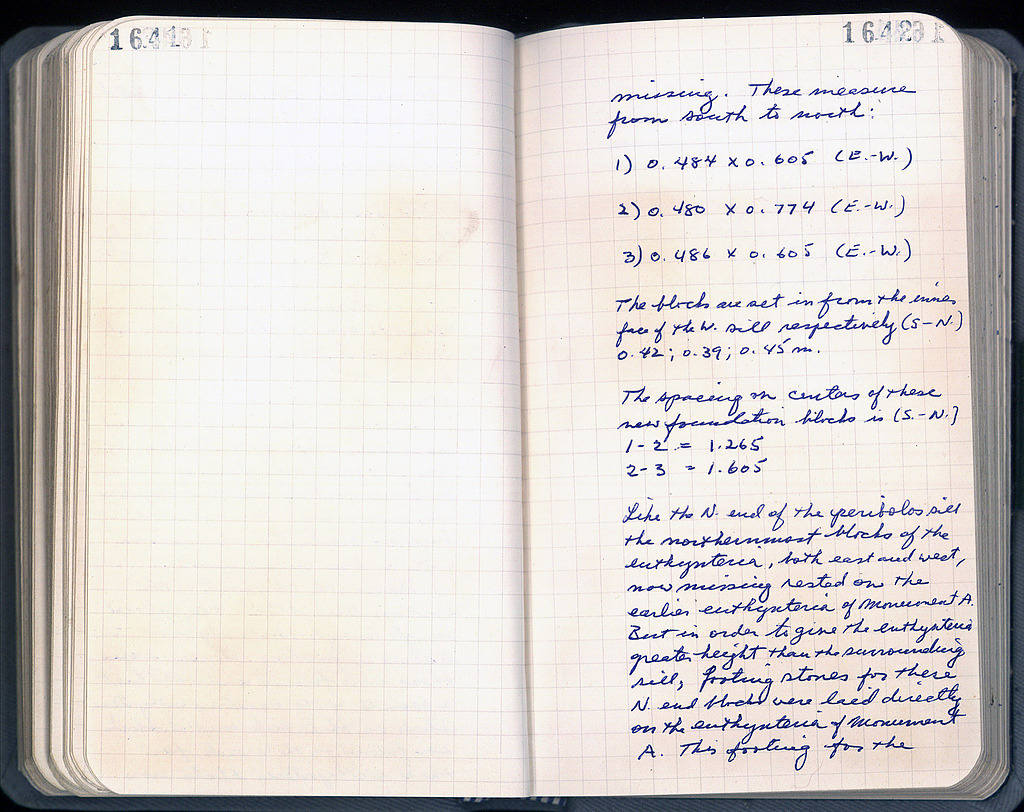 missing. These measure
from south to north:
1) 0.484 x 0.605 (E.-W.)
2) 0.480 x 0.774 (E.-W.)
3) 0.486 x 0.605 (E.-W.)
The blocks are set in from the inner
face of the W. sill respectively (S-N.)
0.42; 0.39; 0.45 m.
The spacing on centers of these
new foundation blocks is (S.-N.)
1-2 = 1.265
2-3 = 1.605
Like the N. end of the peribolos sill
the northernmost blocks of the
euthynteria, both east and west,
now missing rested on the
earlier euthynteria of Monument A.
But in order to give the euthynteria
greater height than the surrounding
sill, footing stones for these
N. end blocks were laid directly
on the euthynteria of Monument
A. This footing for the